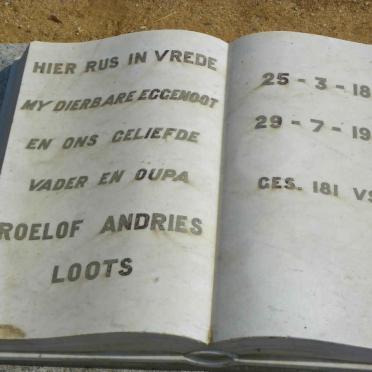 HIER RUS IN VREDE
MY DIERBARE EGGENOOT
EN ONS GELIEFDE
VADER EN OUPA
ROELOF ANDRIES
LOOTS
25 - 3 - 18
29 - 7 - 19
GES. 181 VS